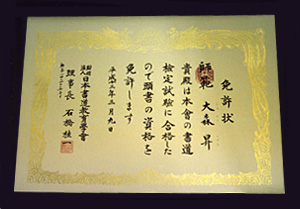 免許状
師範 大森昇
貴殿は本會の書道
検定試験に合格した
ので頭書の資格を
免許します
平成 年三月九日
財団法人日本書道教育学会
理事長 石橋桂一